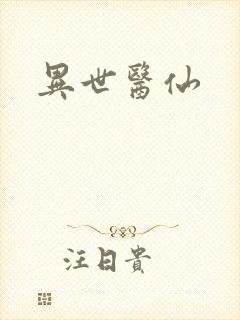 異世醫仙
注日貴